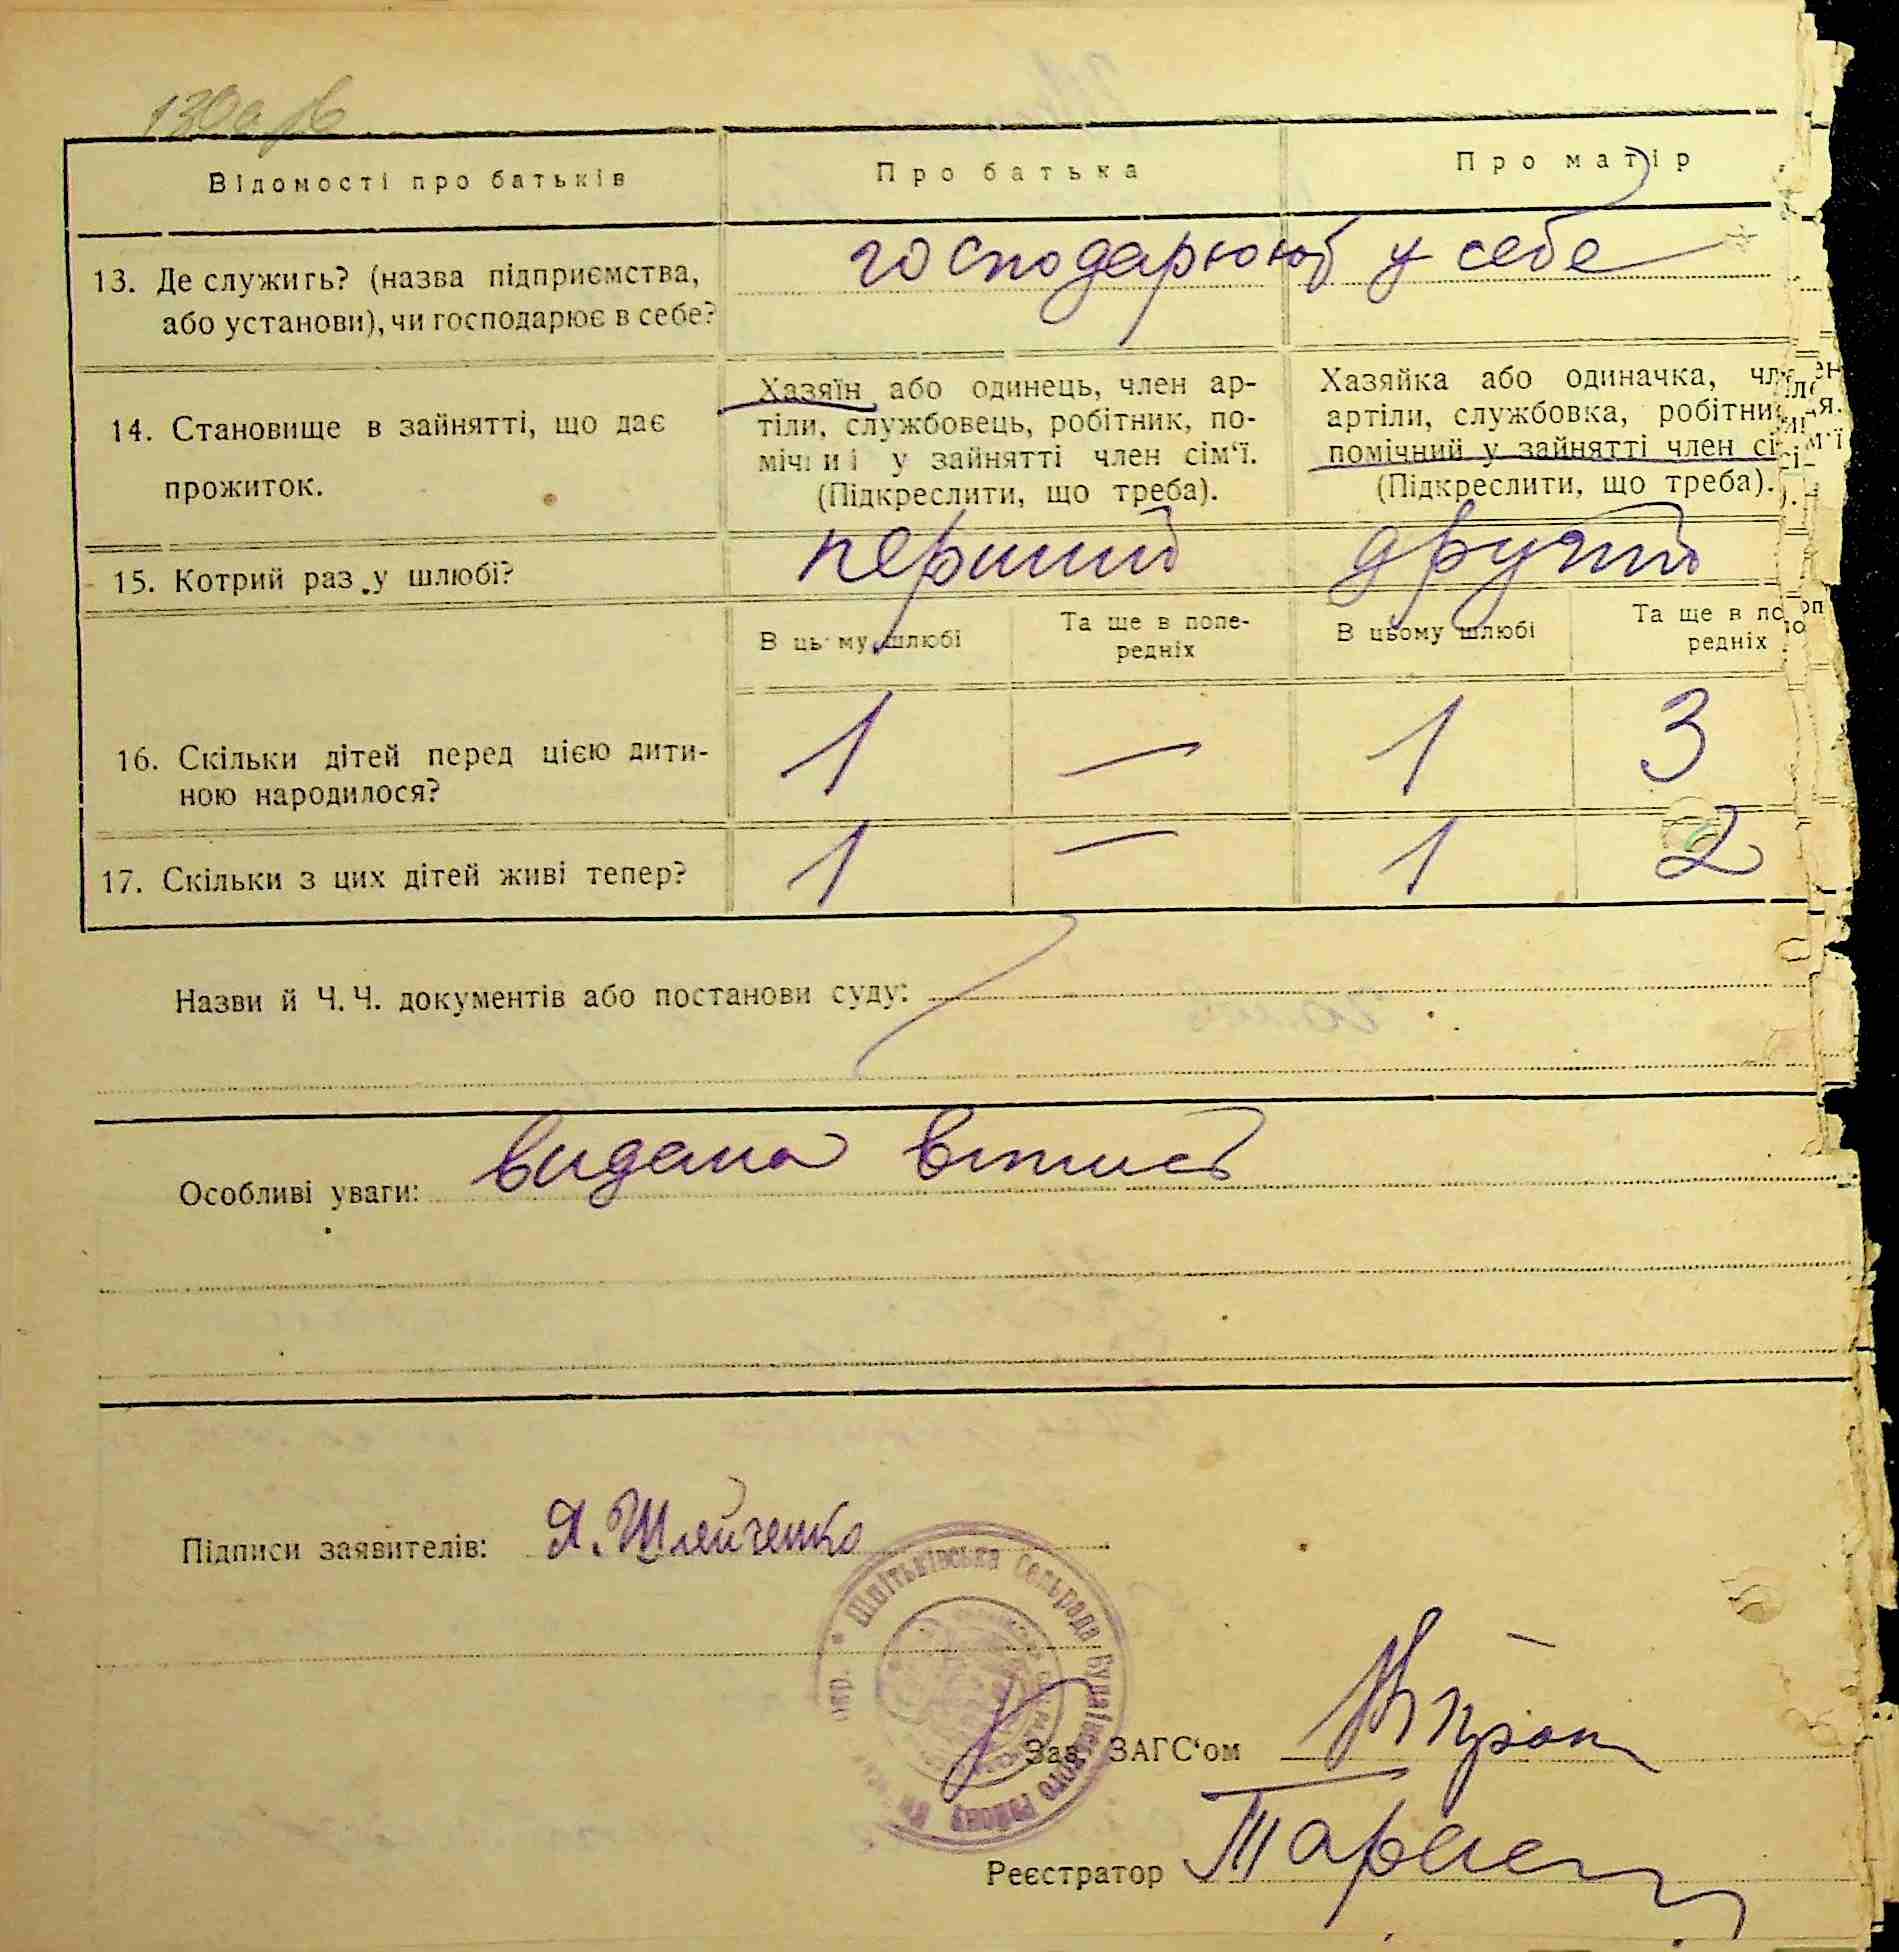 130
Відомості про батьків
Про батька
Про матір
13. Де служить? (назва підприємства,
або установи), чи господарює в себе?
господарюють у себе
14. Становище в зайнятті, що дає
прожиток.
Хазяїн або одинець, член ар-
тіли, службовець, робітник, по-
мічний у зайнятті член сім'ї.
(Підкреслити, що треба).
Хазяйка або одиначка, член
артіли, службовка, робітниця,
помічний у зайнятті член сі
(Підкреслити, що треба).
15. Котрий раз у шлюбі?
перший
другий
В цьому шлюбі
Та ще в попе-
редніх
В цьому шлюбі
Та ще в по
редніх
16. Скільки дітей перед цією дити-
ною народилося?
1 — 1 3
17. Скільки з цих дітей живі тепер?
1 — 1 2
Назви й Ч.Ч. документів або постанови суду:
Особливі уваги: видана витись
Підписи заявителів: Я. Шлейченко
Шпітьківська Сельрада Будаївського району
Зав. ЗАГС'ом
Реєстратор